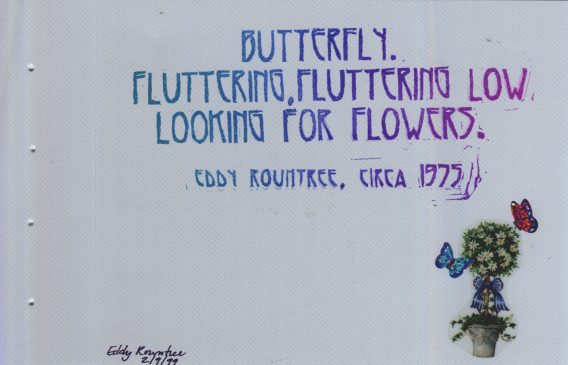 BUTTERFLY.
FLUTTERING, FLUTTERING LOW
LOOKING FOR FLOWERS.
EDDY ROUNTREE, CIRCA 1975
Eddy Rowntree
2/9/99